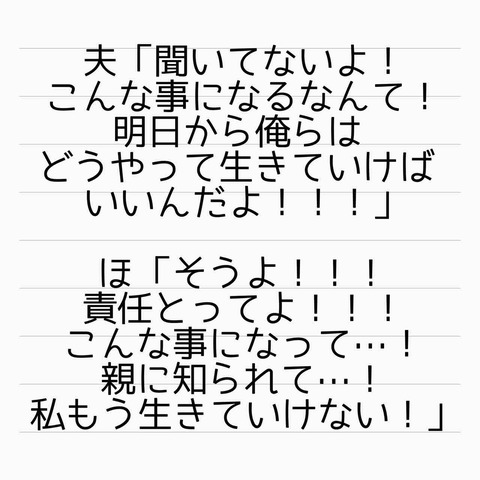 夫「聞いてないよ！
こんな事になるなんて！
明日から俺らは
どうやって生きていけば
いいんだよ！！！」
ほ「そうよ！！！
責任とってよ！！！
こんな事になって…！
親に知られて…！
私もう生きていけない！」